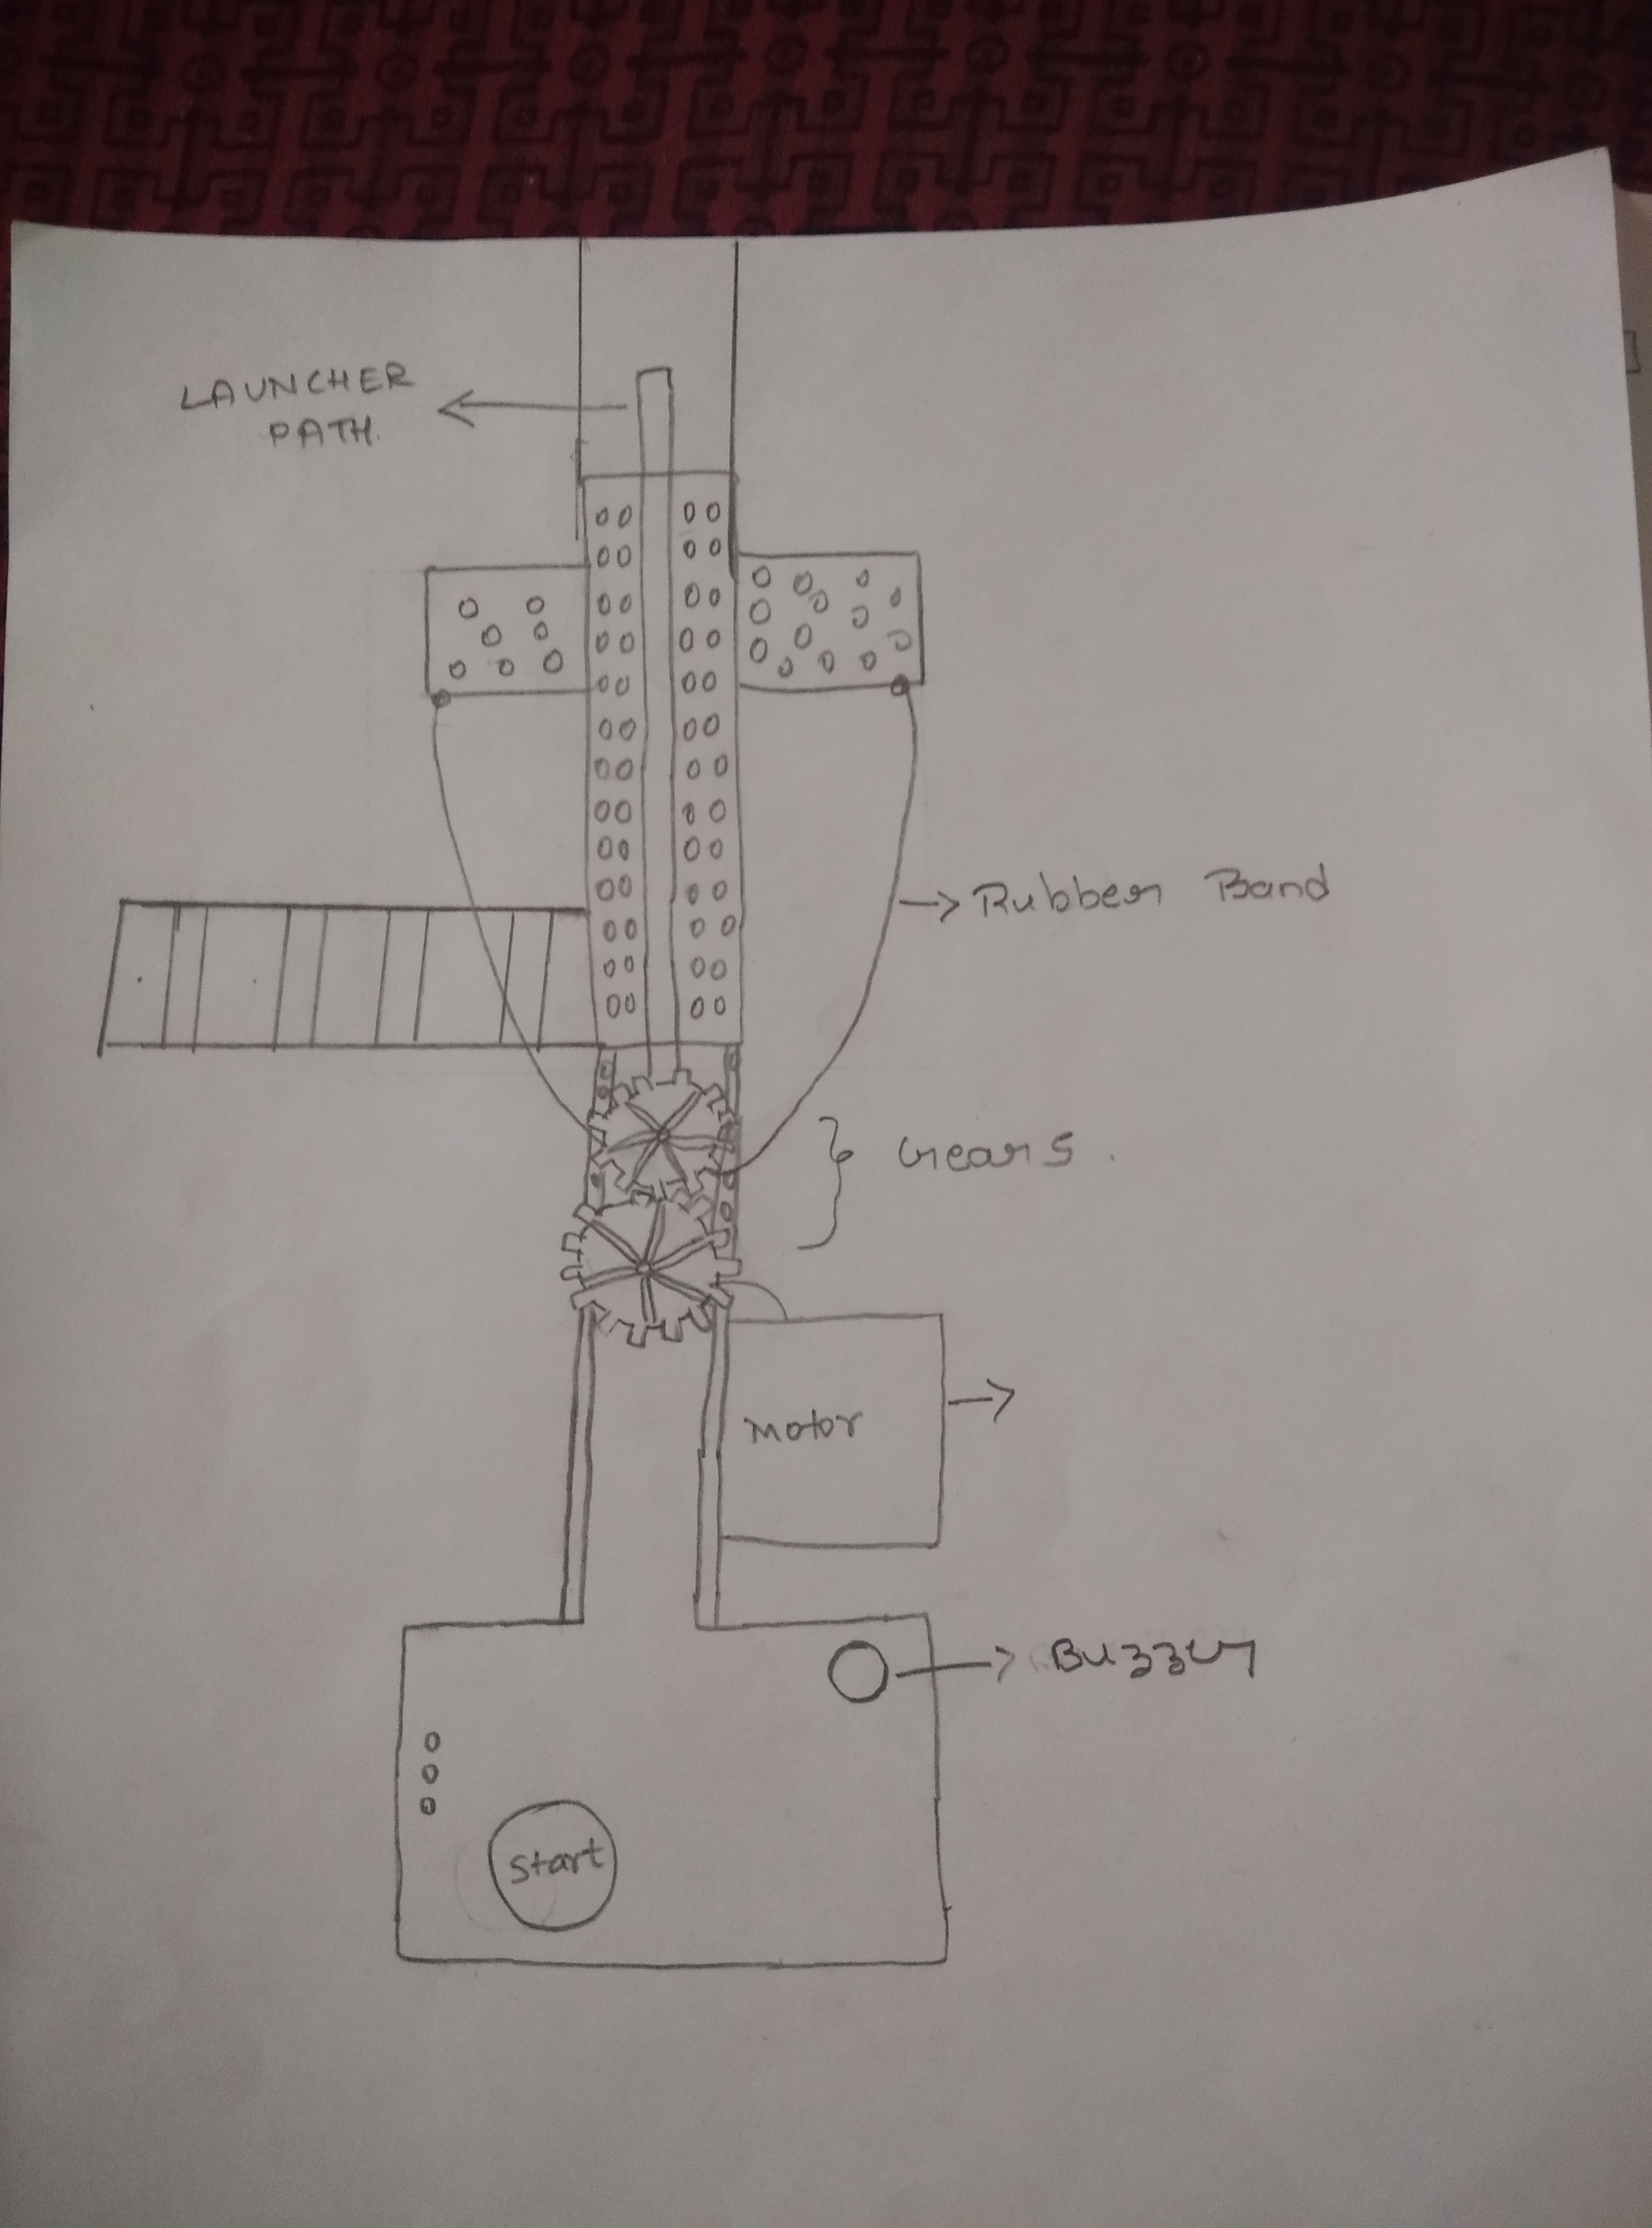 LAUNCHER
PATH.
Rubber Band
Gears.
Motor
Buzzer
Start